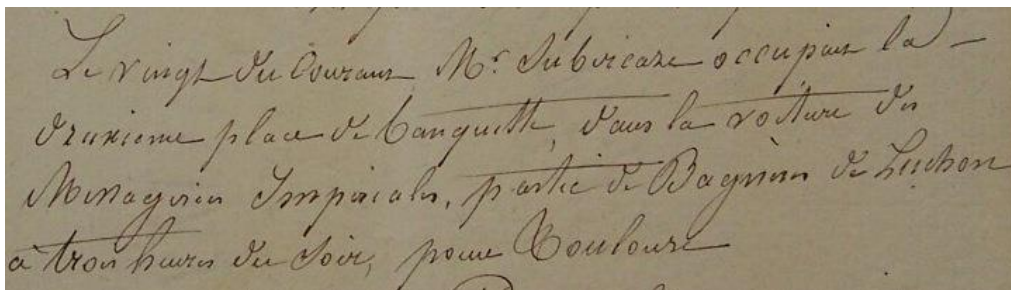 Le vingt du Courant Mr. Dubicaze occupait la
deuxieme place de banquette, dans la voiture des
Messageries Imperiales, partie de Bagnères de Luchon
à trois heures du Soir, pour Toulouse